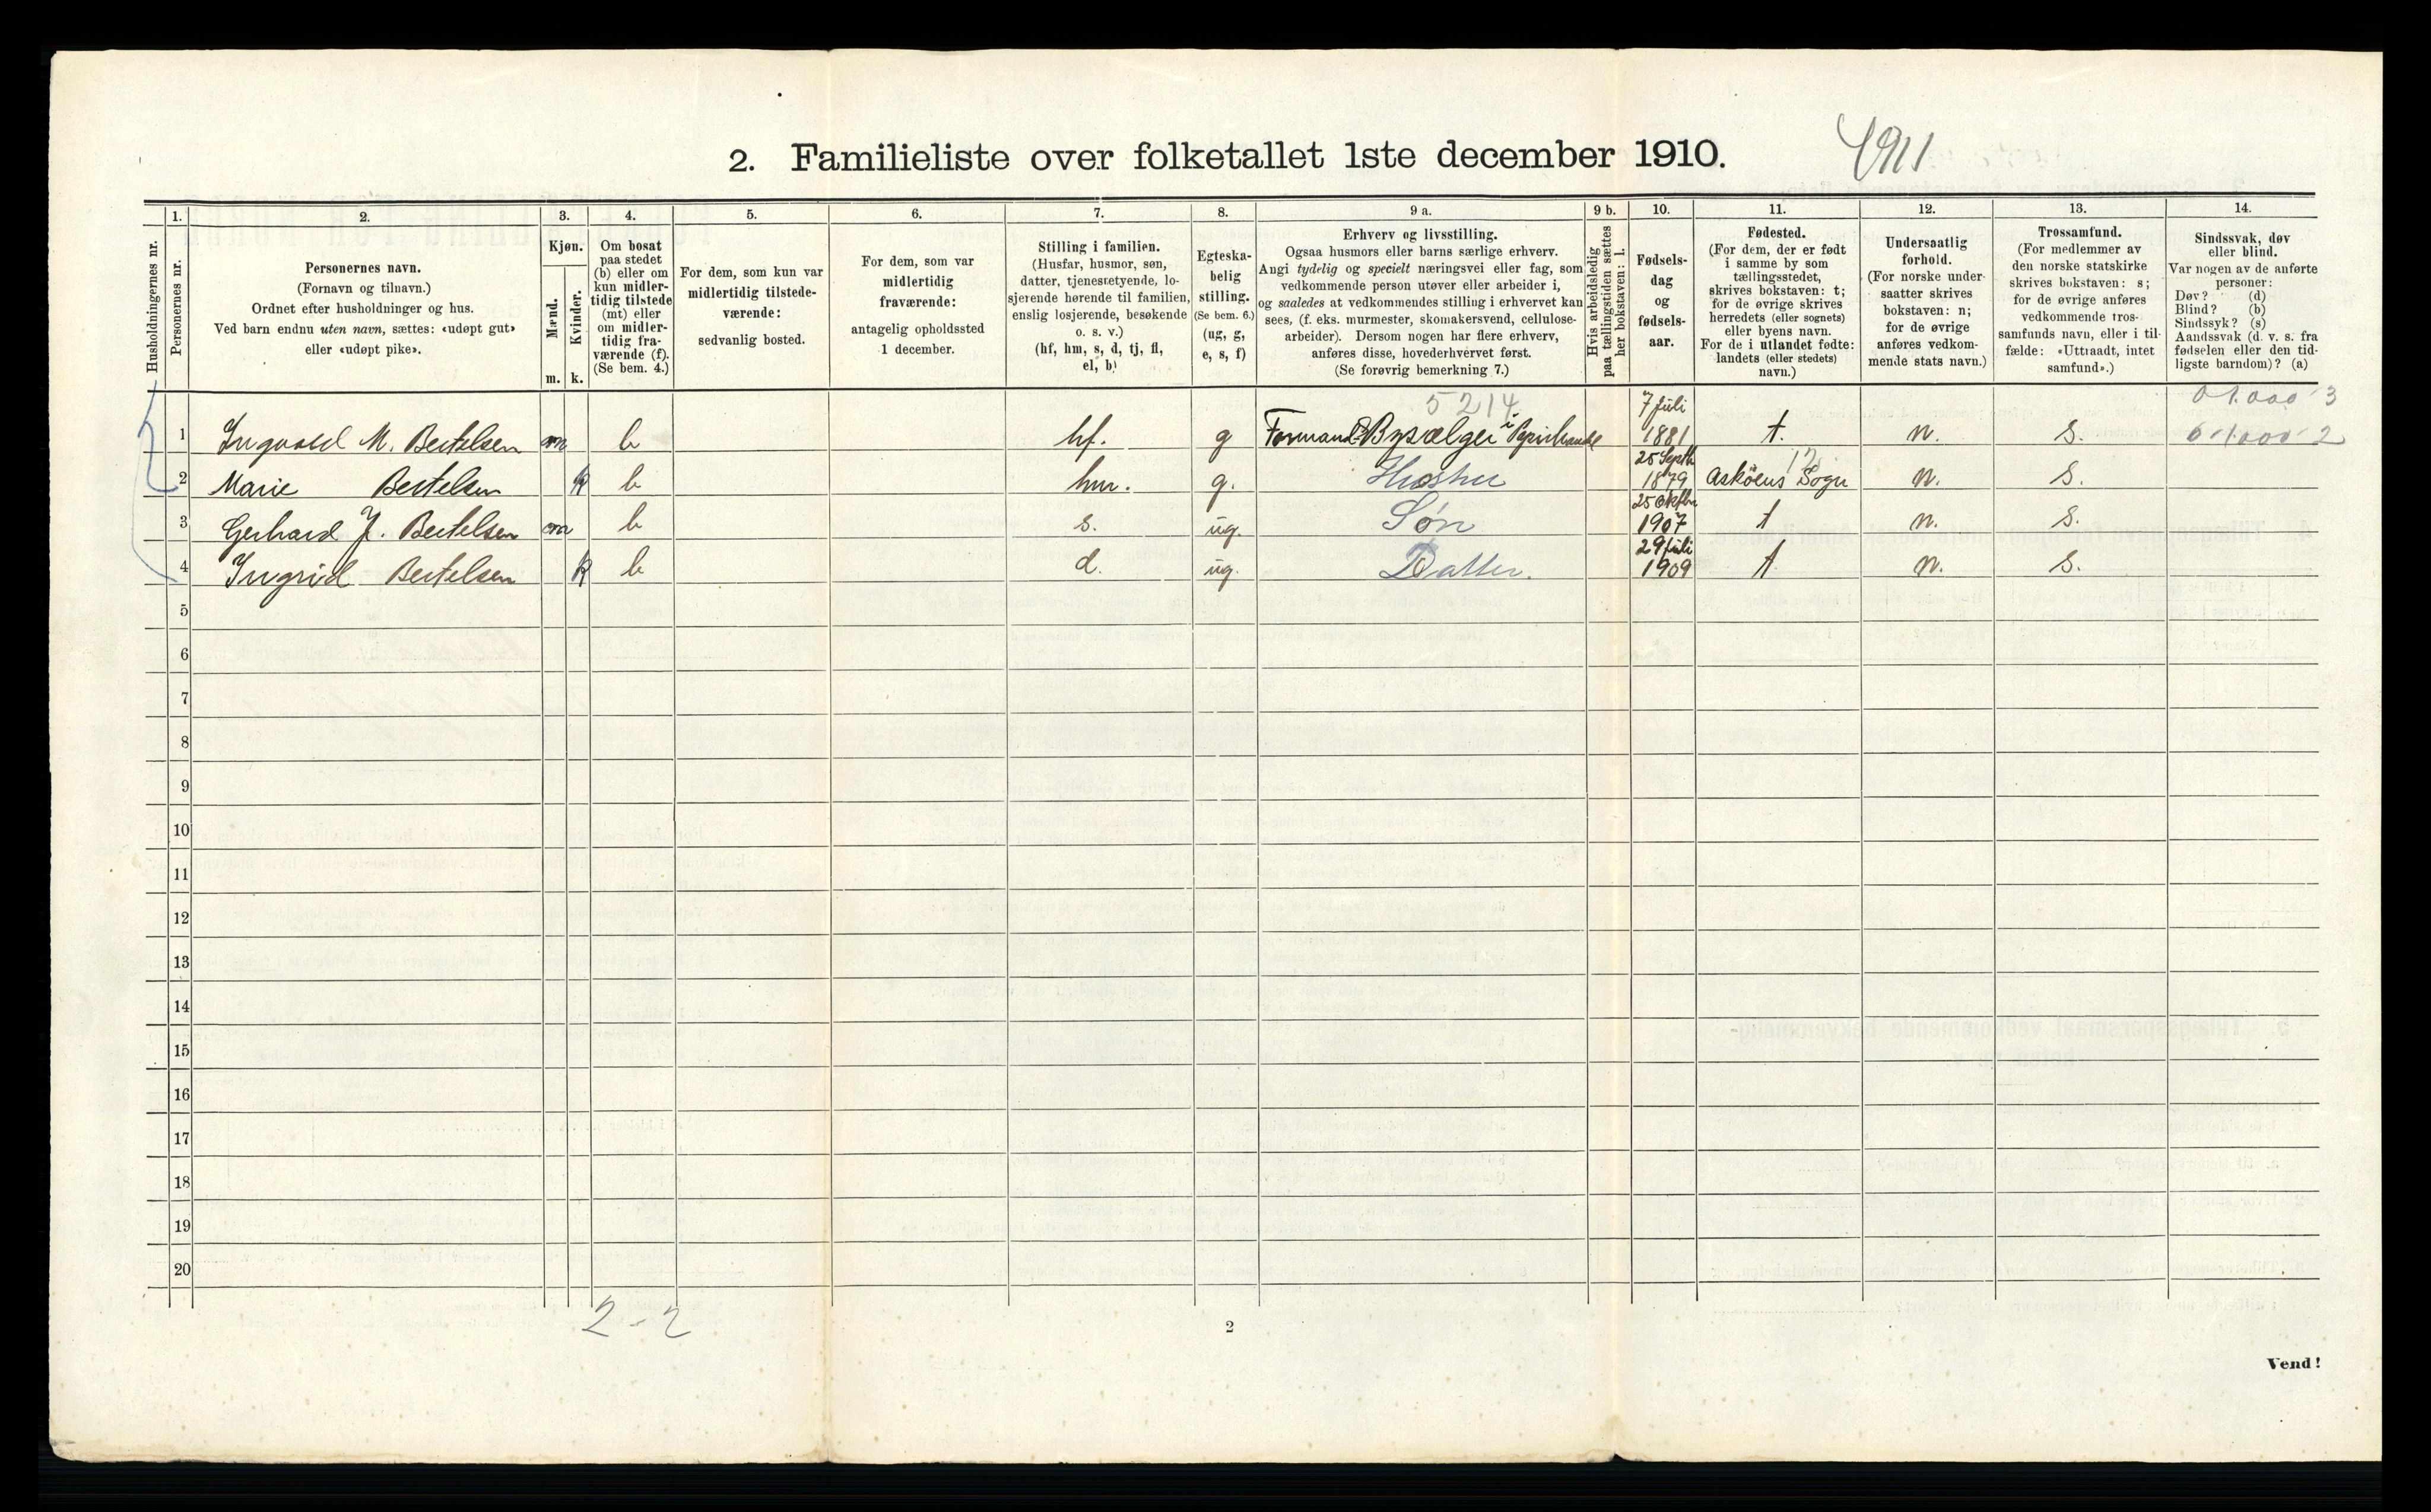 2. Familieliste over folketallet 1ste december 1910.
1. 2. 3. 4. 5. 6. 7. 8. 9 a. 9 b. 10. 11. 12. 13. 14.
Husholdningernes nr.
Personernes nr.
Personernes navn.
(Fornavn og tilnavn.)
Ordnet efter husholdninger og hus.
Ved barn endnu uten navn, sættes: «udøpt gut»
eller «udøpt pike».
Kjøn.
Mænd.
Kvinder.
m. k.
Om bosat
paa stedet
(b) eller om
kun midler-
tidig tilstede
(mt) eller
om midler-
tidig fra-
værende (f).
(Se bem. 4.)
For dem, som kun var
midlertidig tilstede-
værende:
sedvanlig bosted.
For dem, som var
midlertidig
fraværende:
antagelig opholdssted
1 december.
Stilling i familien.
(Husfar, husmor, søn,
datter, tjenestetyende, lo-
sjerende hørende til familien,
enslig losjerende, besøkende
o. s. v.)
(hf, hm, s, d, tj, fl,
el, b)
Egteska-
belig
stilling.
(Se bem. 6.)
(ug, g,
e, s, f)
Erhverv og livsstilling.
Ogsaa husmors eller barns særlige erhverv.
Angi tydelig og specielt næringsvei eller fag, som
vedkommende person utøver eller arbeider i,
og saaledes at vedkommendes stilling i erhvervet kan
sees, (f. eks. murmester, skomakersvend, cellulose-
arbeider). Dersom nogen har flere erhverv,
anføres disse, hovederhvervet først.
(Se forøvrig bemerkning 7.)
Hvis arbeidsledig
paa tællingstiden sættes
her bokstaven: l.
Fødsels-
dag
og
fødsels-
aar.
Fødested.
(For dem, der er født
i samme by som
tællingsstedet,
skrives bokstaven: t;
for de øvrige skrives
herredets (eller sognets)
eller byens navn.
For de i utlandet fødte:
landets (eller stedets)
navn.)
Undersaatlig
forhold.
(For norske under-
saatter skrives
bokstaven: n;
for de øvrige
anføres vedkom-
mende stats navn.)
Trossamfund.
(For medlemmer av
den norske statskirke
skrives bokstaven: s;
for de øvrige anføres
vedkommende tros-
samfunds navn, eller i til-
fælde: «Uttraadt, intet
samfund».)
Sindssvak, døv
eller blind.
Var nogen av de anførte
personer:
Døv? (d)
Blind? (b)
Sindssyk? (s)
Aandssvak (d. v. s. fra
fødselen eller den tid-
ligste barndom)? (a)
5214 7 juli
1 Ingvald M. Bertelsen m b hf. g Formand i 1881 t. n. s.
25 Septb
2 Marie Bertelsen k b hm. g. Hustru 1879 Askøens Sogn n. s.
25 Oktbr
3 Gerhard J. Bertelsen m b s. ug. Søn 1907 t n. s.
29 juli
4 Ingrid Bertelsen k b d. ug. Datter. 1909 t n. s.
5
6
7
8
9
10
11
12
13
14
15
16
17
18
19
20
2-2
2
Vend!